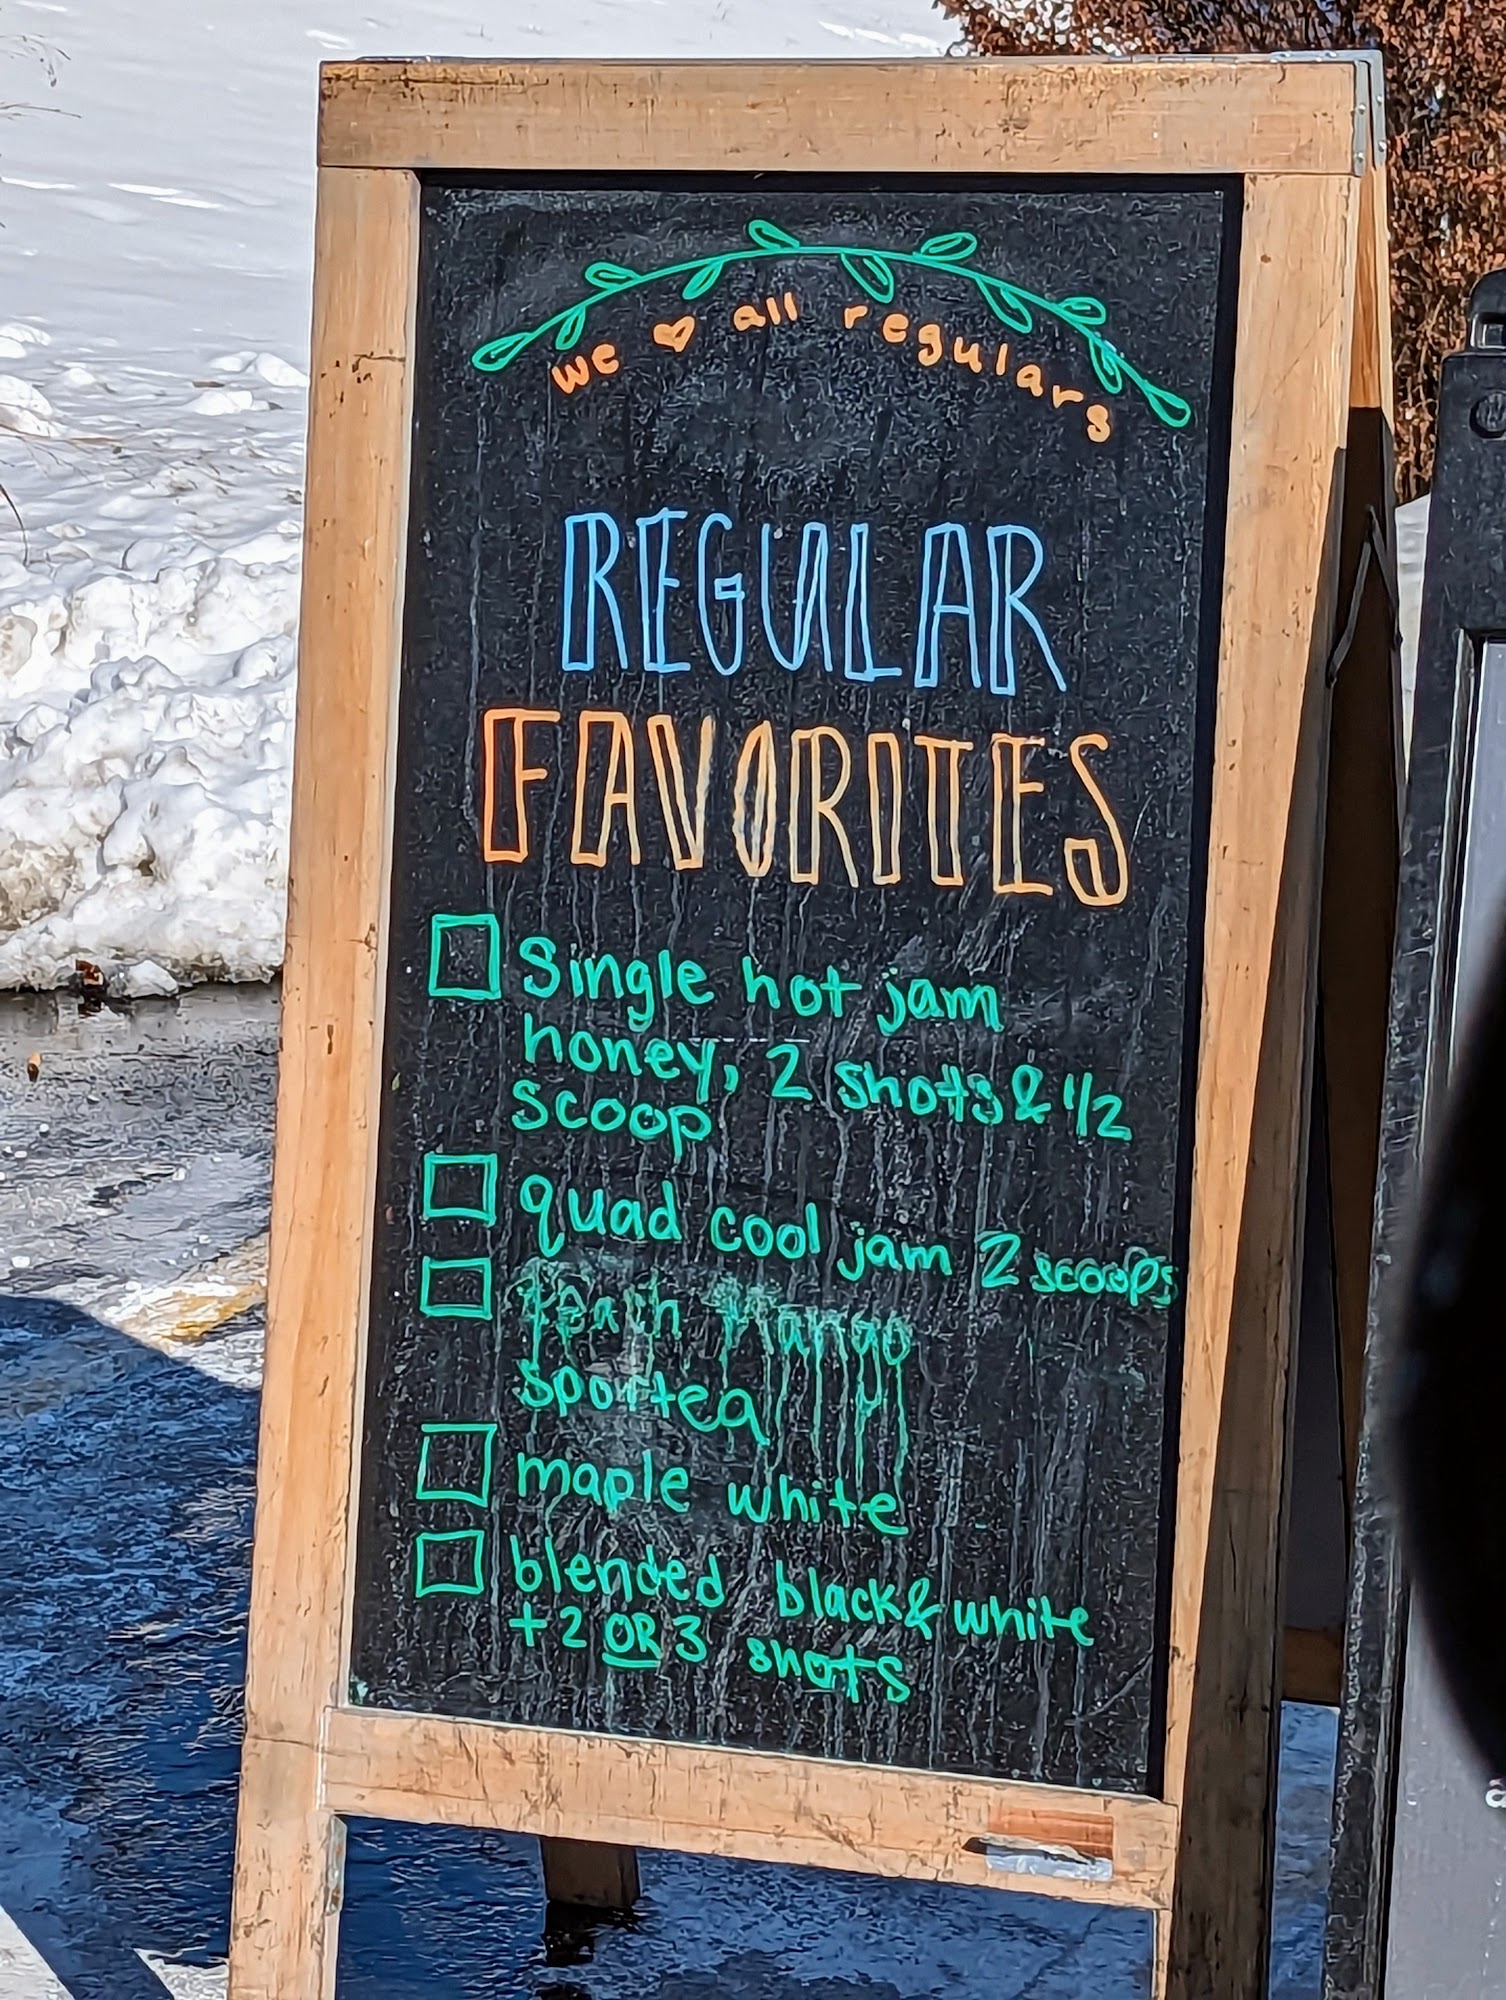 we ♡ all regulars
REGULAR
FAVORITES
Single hot jam
honey, 2 shots & 1/2
scoop
quad cool jam 2 scoops
Peach Mango
sportea
maple white
blended black & white
+ 2 OR 3 shots